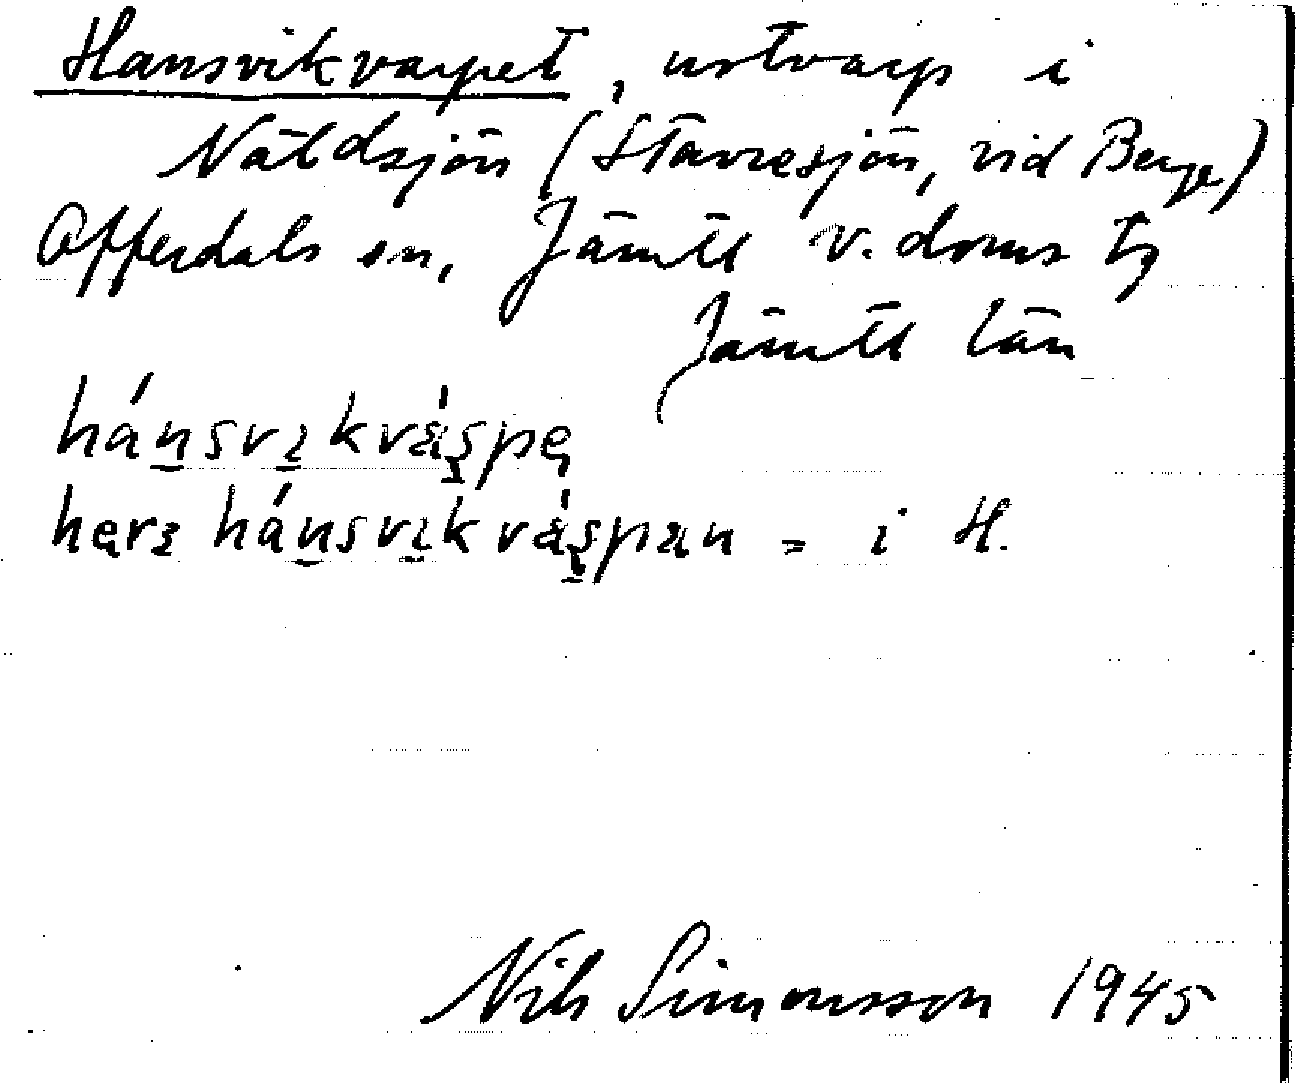 Hansvikvarpet, notvarp i
Näldsjön (Stavresjön, vid Berge)
Offerdals sn, Jämtl v. doms tg
Jämtl län
hánsvıkváspę
hánsvıkváspan = i H.
Nils Simonsson 1945